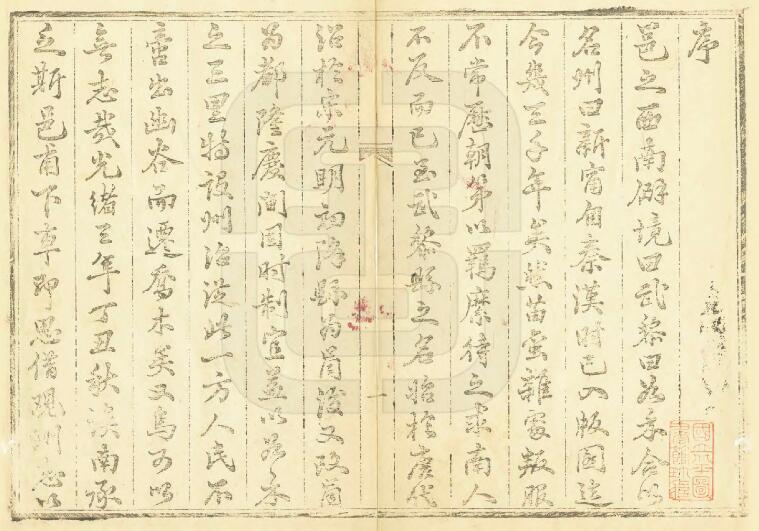 序
邕之西南僻境曰武黎曰如禾合以
名州曰新甯自秦漢時已入版圖迄
今幾三千年矣然苗蛮雜處叛服
不常歷朝第以羈縻待之要南人
不反而已至武黎縣之名昉於唐代
沿於宋元明初降縣為又改
為都隆慶間因時制宜
之三里特設州治從此一方人民不
啻出幽谷而遷喬木矣又烏可以
無志哉光緒三年丁丑秋南承
乏斯邑甫下車即思借觀州志以